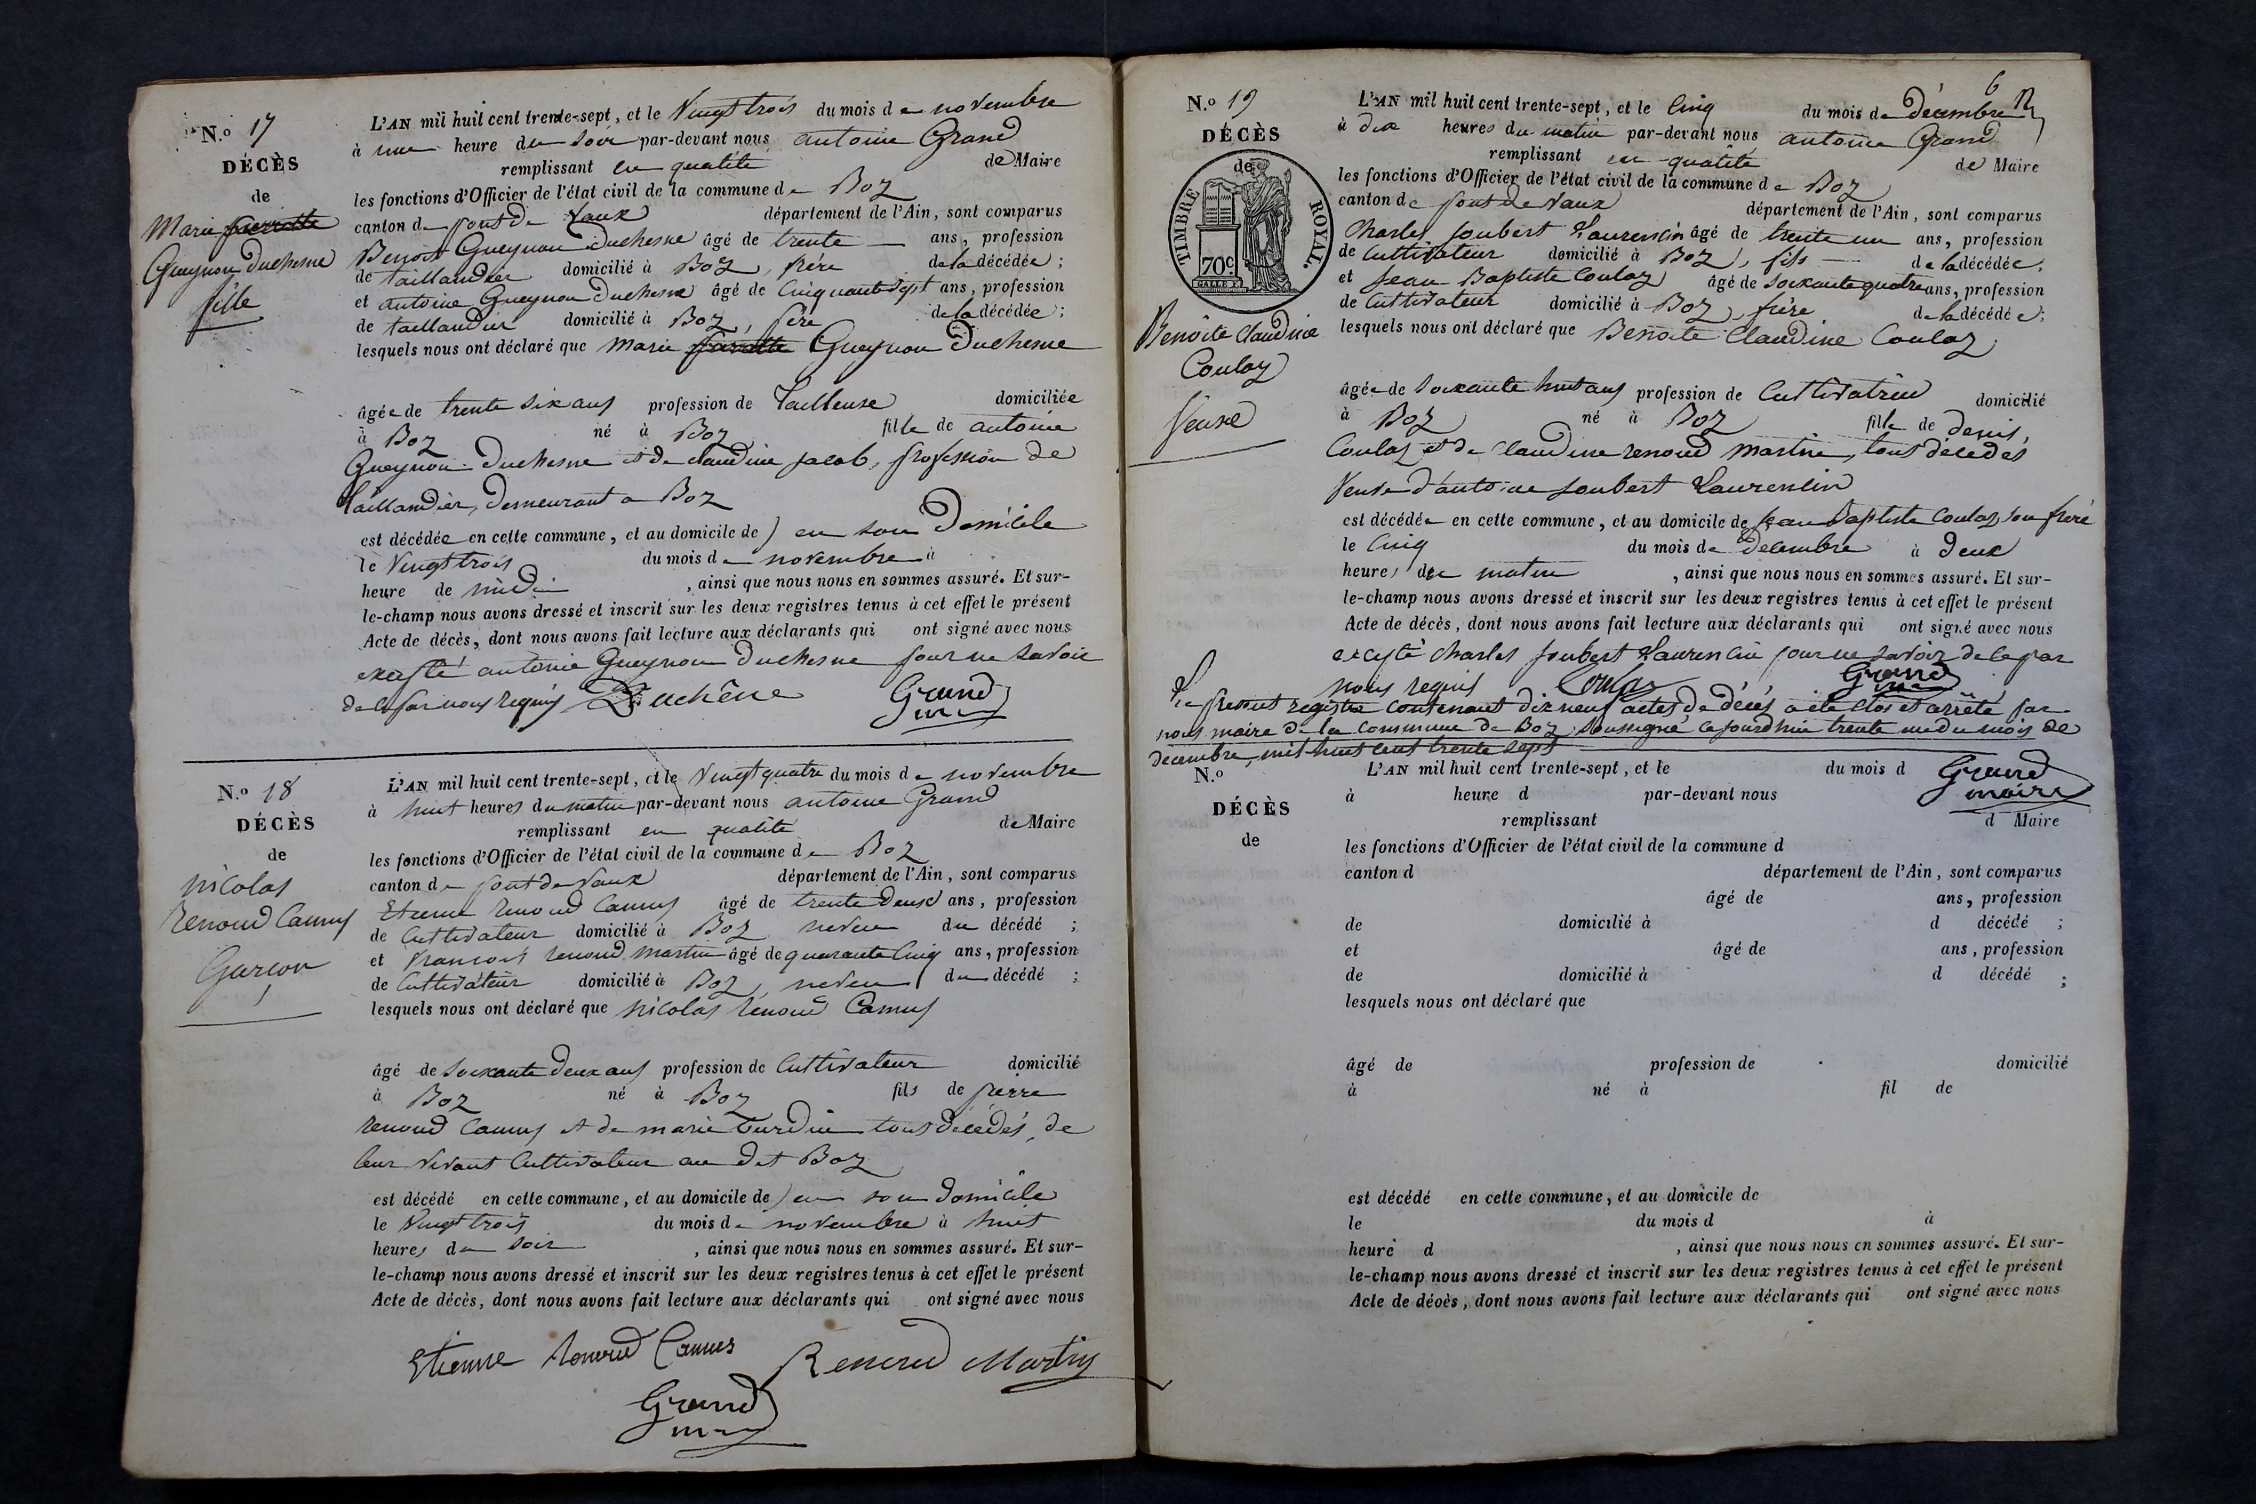 N.° 17
DÉCÈS
de
Marie pierrette
Gueynon Duchesne
fille
L'AN mil huit cent trente-sept, et le Vingt trois du mois de novembre
à une heure du soir par-devant nous antoine Grand
remplissant en qualité de Maire
les fonctions d'Officier de l'état civil de la commune de Boz
canton de pont de Vaux département de l'Ain, sont comparus
Benoit Gueynon Duchesne âgé de trente ans, profession
de taillandier domicilié à Boz, frère de la décédée;
et antoine Gueynon Duchesne âgé de Cinquante Sept ans, profession
de taillandier domicilié à Boz, père de la décédée;
lesquels nous ont déclaré que Marie pierrette Gueynon Duchesne
âgée de trente six ans profession de tailleuse domiciliée
à Boz né à Boz fille de antoine
Gueynon Duchesne et de claudine jacob, profession de
taillandier, demeurant a Boz
est décédée en cette commune, et au domicile de) en son Domicile
le Vingt trois du mois de novembre à
heure de midi, ainsi que nous nous en sommes assuré. Et sur-
le-champ nous avons dressé et inscrit sur les deux registres tenus à cet effet le présent
Acte de décès, dont nous avons fait lecture aux déclarants qui ont signé avec nous
exepté antoine Gueynon Duchesne pour ne savoir
de ce par nous requis Duchêne Grand
N.° 18
DÉCÈS
de
nicolas
renoud Camus
Garçon
L'AN mil huit cent trente-sept, et le Vingt quatre du mois de novembre
à huit heures du matin par-devant nous antoine Grand
remplissant en qualité de Maire
les fonctions d'Officier de l'état civil de la commune de Boz
canton de pont de Vaux département de l'Ain, sont comparus
Etienne renoud Camus âgé de trente Deux ans, profession
de Cultivateur domicilié à Boz neveu du décédé;
et François renoud Martin âgé de quarante Cinq ans, profession
de Cultivateur domicilié à Boz, neveu du décédé;
lesquels nous ont déclaré que nicolas renoud Camus
âgé de soixante Deux ans profession de Cultivateur domicilié
à Boz né à Boz fils de pierre
renoud Camus et de marie Gurdin tous Décédés, de
leur vivant Cultivateur au dit Boz
est décédé en cette commune, et au domicile de) en son Domicile
le Vingt trois du mois de novembre à huit
heures du soir, ainsi que nous nous en sommes assuré. Et sur-
le-champ nous avons dressé et inscrit sur les deux registres tenus à cet effet le présent
Acte de décès, dont nous avons fait lecture aux déclarants qui ont signé avec nous
Etienne Renoud Camus Renoud Martin
Grand
6
N.° 19
DÉCÈS
de
TIMBRE ROYAL.
70c
Benoite Claudine
Coulaz
Veuve
L'AN mil huit cent trente-sept, et le Cinq du mois de décembre
à dix heures du matin par-devant nous antoine Grand
remplissant en qualité de Maire
les fonctions d'Officier de l'état civil de la commune de Boz
canton de pont de Vaux département de l'Ain, sont comparus
Charles Joubert Laurencin âgé de trente un ans, profession
de Cultivateur domicilié à Boz, fils de la décédée,
et Jean Baptiste Coulaz âgé de soixante quatre ans, profession
de Cultivateur domicilié à Boz, frère de la décédée;
lesquels nous ont déclaré que Benoite Claudine Coulaz
âgée de soixante huit ans profession de Cultivatrice domicilié
à Boz né à Boz fille de denis,
Coulaz et de Claudine renoud Martin, tous décédés
Veuve d'antoine Joubert Laurencin
est décédée en cette commune, et au domicile de Jean Baptiste Coulaz, son frère
le Cinq du mois de Décembre à deux
heures du matin, ainsi que nous nous en sommes assuré. Et sur-
le-champ nous avons dressé et inscrit sur les deux registres tenus à cet effet le présent
Acte de décès, dont nous avons fait lecture aux déclarants qui ont signé avec nous
excepté Charles Joubert Laurencin pour ne savoir de ce par
nous requis Coulaz Grand
Le present registre contenant dix neuf actes de décés a été clos et arrêté par
nous maire de la Commune de Boz soussigné cejourdhui trente un du mois de
decembre, mil huit cent trente sept
Grand
maire
N.°
DÉCÈS
de
L'AN mil huit cent trente-sept, et le du mois d
à heure d par-devant nous
remplissant d Maire
les fonctions d'Officier de l'état civil de la commune d
canton d département de l'Ain, sont comparus
âgé de ans, profession
de domicilié à d décédé ;
et âgé de ans, profession
de domicilié à d décédé ;
lesquels nous ont déclaré que
âgé de profession de domicilié
à né à fil de
est décédé en cette commune, et au domicile de
le du mois d à
heure d , ainsi que nous nous en sommes assuré. Et sur-
le-champ nous avons dressé et inscrit sur les deux registres tenus à cet effet le présent
Acte de décès, dont nous avons fait lecture aux déclarants qui ont signé avec nous